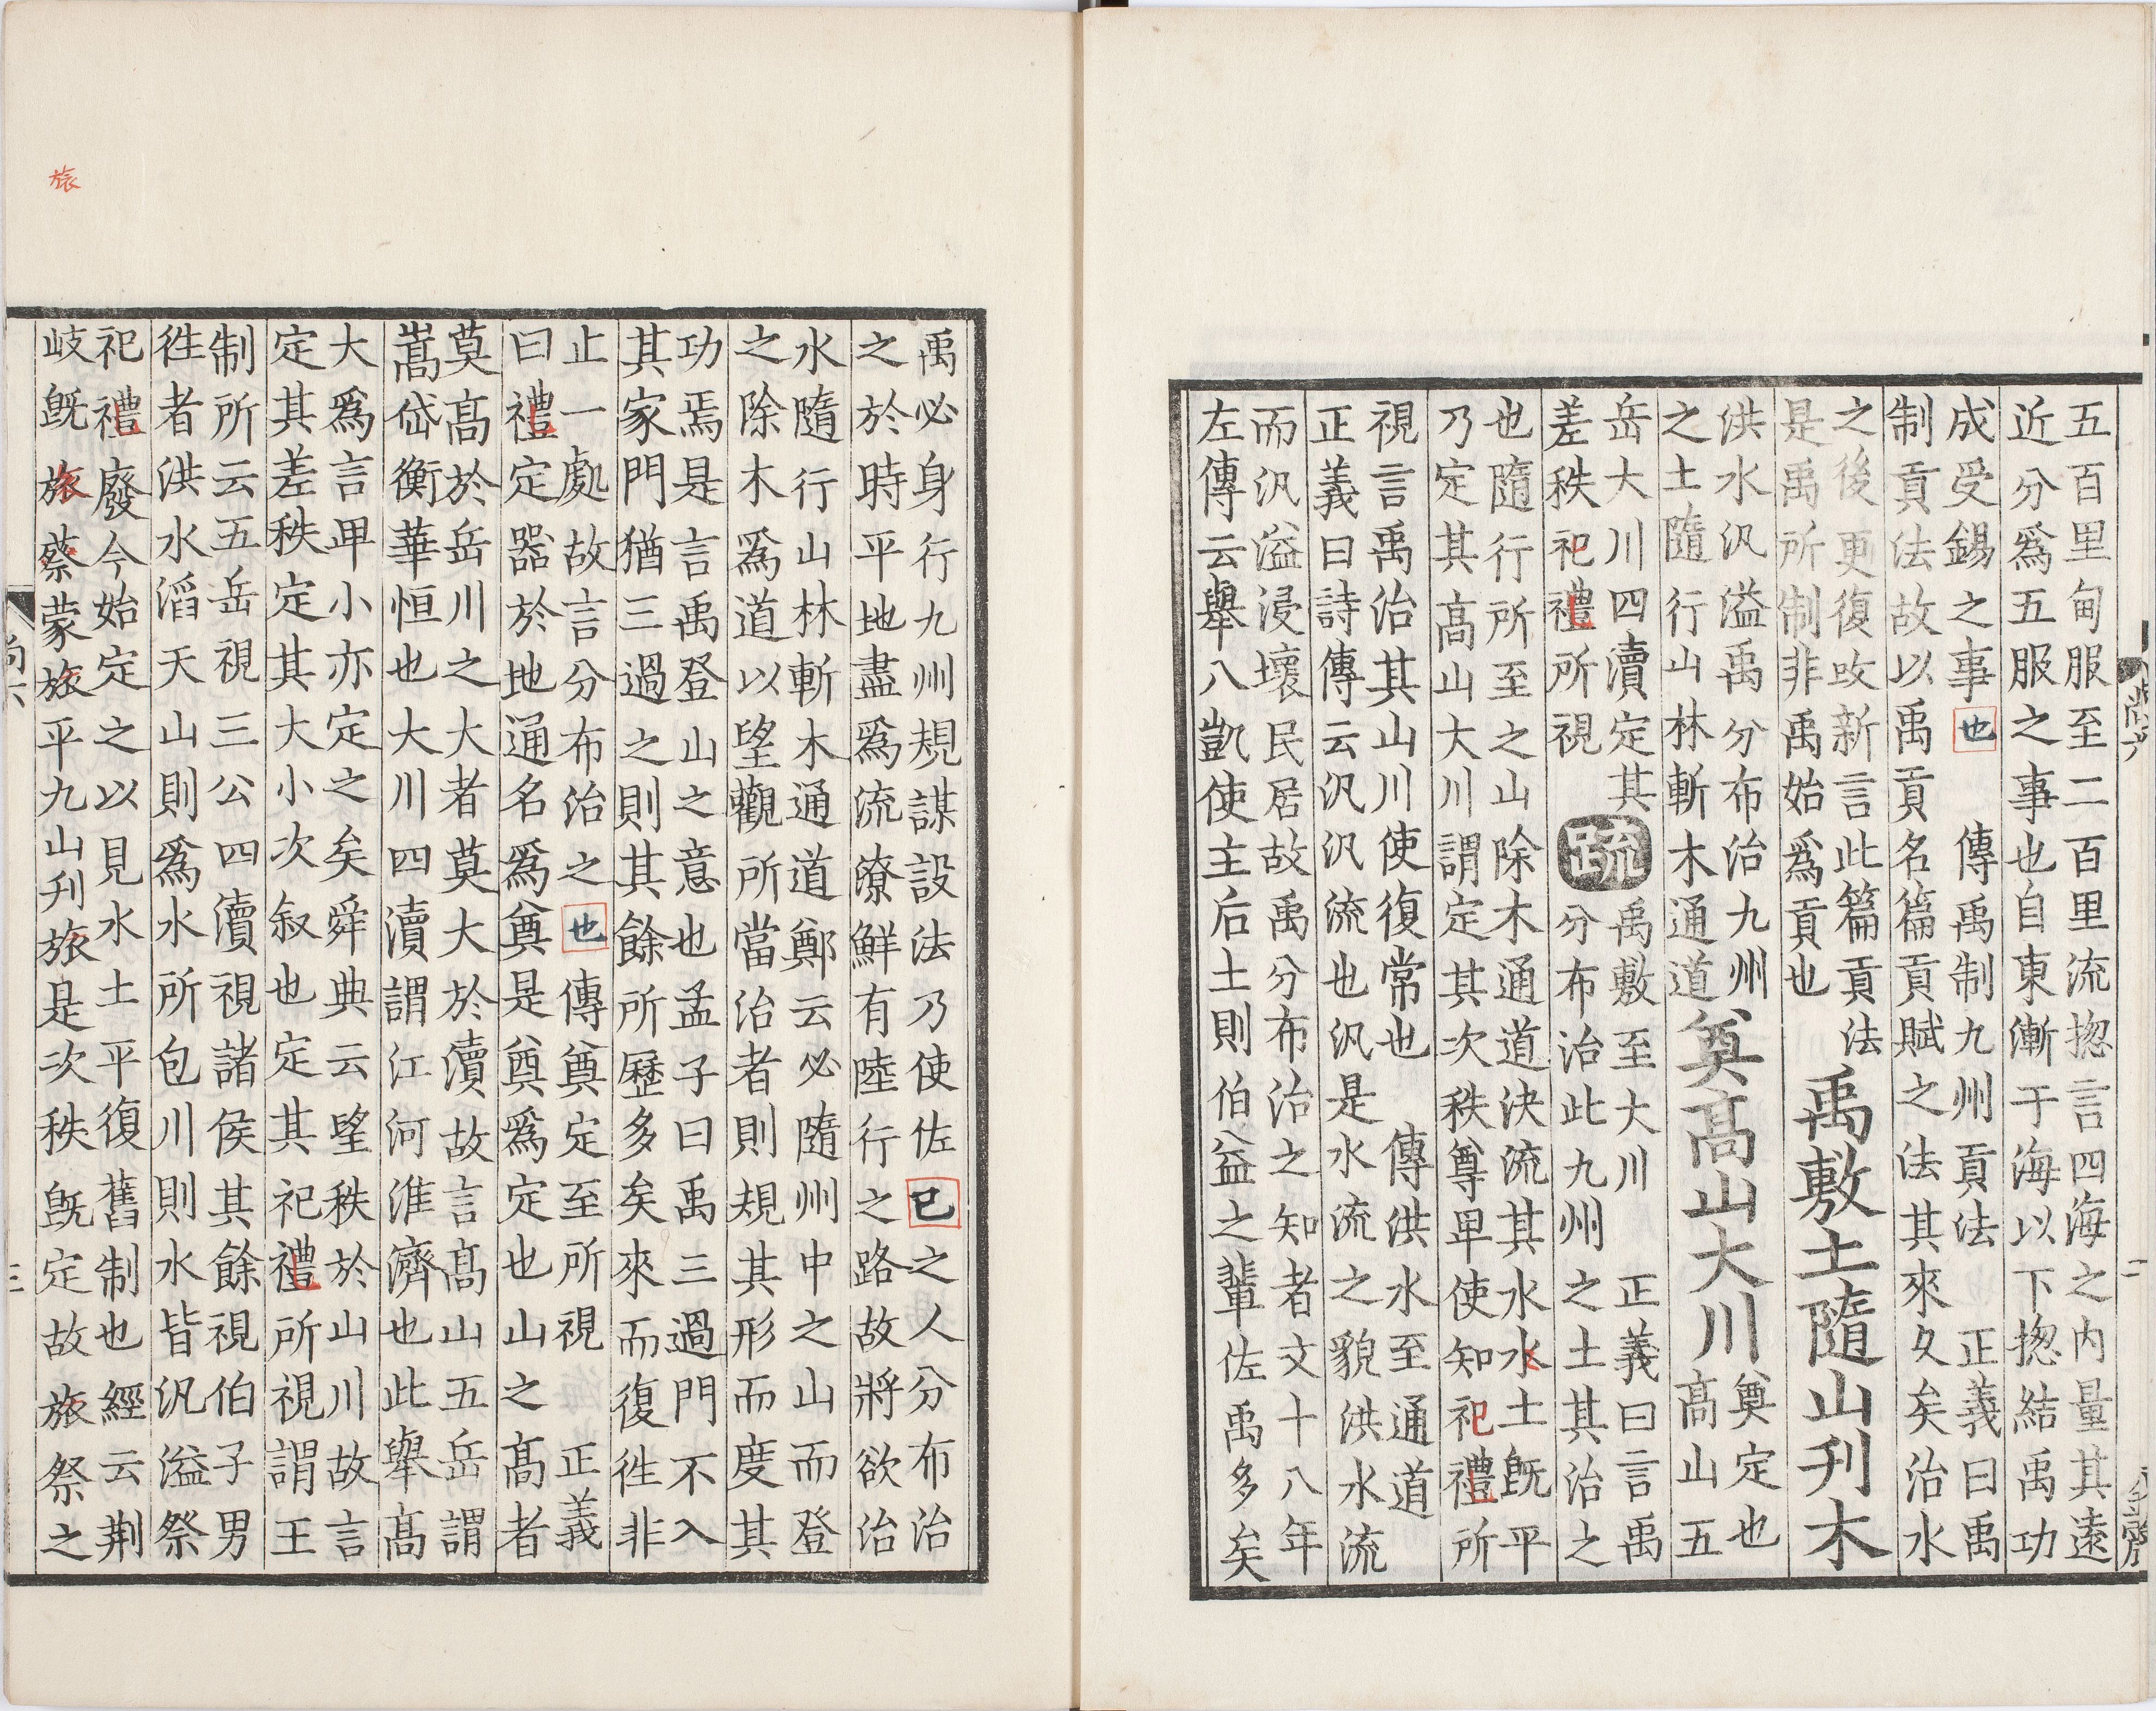 五百里甸服至二百里流揔言四海之内量其遠
近分爲五服之事也自東漸于海以下揔結禹功
成受錫之事也　傳禹制九州貢法　正義曰禹
制貢法故以禹貢名篇貢賦之法其來久矣治水
之後更復改新言此篇貢法
是禹所制非禹始爲貢也
禹敷土隨山刋木
洪水汎溢禹分布治九州
之土隨行山林斬木通道
奠髙山大川
奠定也
髙山五
岳大川四瀆定其
差秩祀禮所視
疏
禹敷至大川　正義曰言禹
分布治此九州之土其治之
也隨行所至之山除木通道決流其水水土既平
乃定其髙山大川謂定其次秩尊卑使知祀禮所
視言禹治其山川使復常也　傳洪水至通道
正義曰詩傳云汎汎流也汎是水流之貌洪水流
而汎溢浸壞民居故禹分布治之知者文十八年
左傳云舉八凱使主后土則伯益之輩佐禹多矣
禹必身行九州規謀設法乃使佐已之人分布治
之於時平地盡爲流潦鮮有陸行之路故將欲治
水隨行山林斬木通道鄭云必隨州中之山而登
之除木爲道以望觀所當治者則規其形而度其
功焉是言禹登山之意也孟子曰禹三過門不入
其家門猶三過之則其餘所歷多矣來而復徃非
止一處故言分布治之也　傳奠定至所視　正義
曰禮定器於地通名爲奠是奠爲定也山之髙者
莫髙於岳川之大者莫大於瀆故言髙山五岳謂
嵩岱衡華恒也大川四瀆謂江河淮濟也此舉髙
大爲言卑小亦定之矣舜典云望秩於山川故言
定其差秩定其大小次叙也定其祀禮所視謂王
制所云五岳視三公四瀆視諸侯其餘視伯子男
徃者洪水滔天山則爲水所包川則水皆汎溢祭
祀禮廢今始定之以見水土平復舊制也經云荆
岐既旅蔡蒙旅平九山刋旅是次秩既定故旅祭之
旅
尚六
三
尚六
二